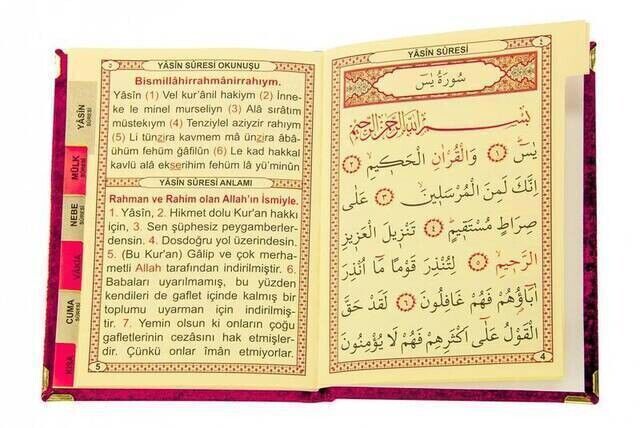 YÂSİN SÛRESİ OKUNUŞU
Bismillâhirrahmânirrahıym.
Yâsîn (1) Vel kur'ânil hakiym (2) İnne-
ke le minel murseliyn (3) Alâ sırâtım
müstekıym (4) Tenziylel aziyzir rahıym
(5) Li tünzira kavmem mâ ünzira âbâ-
ühüm fehüm ğâfilûn (6) Le kad hakkal
kavlü alâ ekserihim fehüm lâ yü'minûn
YÂSİN SÛRESİ ANLAMI
Rahman ve Rahim olan Allah'ın İsmiyle.
1. Yâsîn, 2. Hikmet dolu Kur'an hakkı
için, 3. Sen şüphesiz peygamberler-
densin. 4. Dosdoğru yol üzerindesin.
5. (Bu Kur'an) Gâlip ve çok merha-
metli Allah tarafından indirilmiştir. 6.
Babaları uyarılmamış, bu yüzden
kendileri de gaflet içinde kalmış bir
toplumu uyarman için indirilmiş-
tir. 7. Yemin olsun ki onların çoğu
gafletlerinin cezasını hak etmişler-
dir. Çünkü onlar îmân etmiyorlar.
5
YÂSİN SÛRESİ
MÜLK SÛRESİ
NEBE SÛRESİ
VÂKIA
CUMA SÛRESİ
KISA
YÂSİN SÛRESİ
٤
سُورَةُ يٰسٓ
بِسْمِ اللّٰهِ الرَّحْمٰنِ الرَّحِيمِ
يٰسٓ ﴿١﴾ وَالْقُرْاٰنِ الْحَكِيمِ ﴿٢﴾
اِنَّكَ لَمِنَ الْمُرْسَلِينَ ﴿٣﴾ عَلٰى
صِرَاطٍ مُسْتَقِيمٍ ﴿٤﴾ تَنْزِيلَ الْعَزِيزِ
الرَّحِيمِ ﴿٥﴾ لِتُنْذِرَ قَوْمًا مَا اُنْذِرَ
اٰبَاؤُهُمْ فَهُمْ غَافِلُونَ ﴿٦﴾ لَقَدْ حَقَّ
الْقَوْلُ عَلٰى اَكْثَرِهِمْ فَهُمْ لَا يُؤْمِنُونَ
4